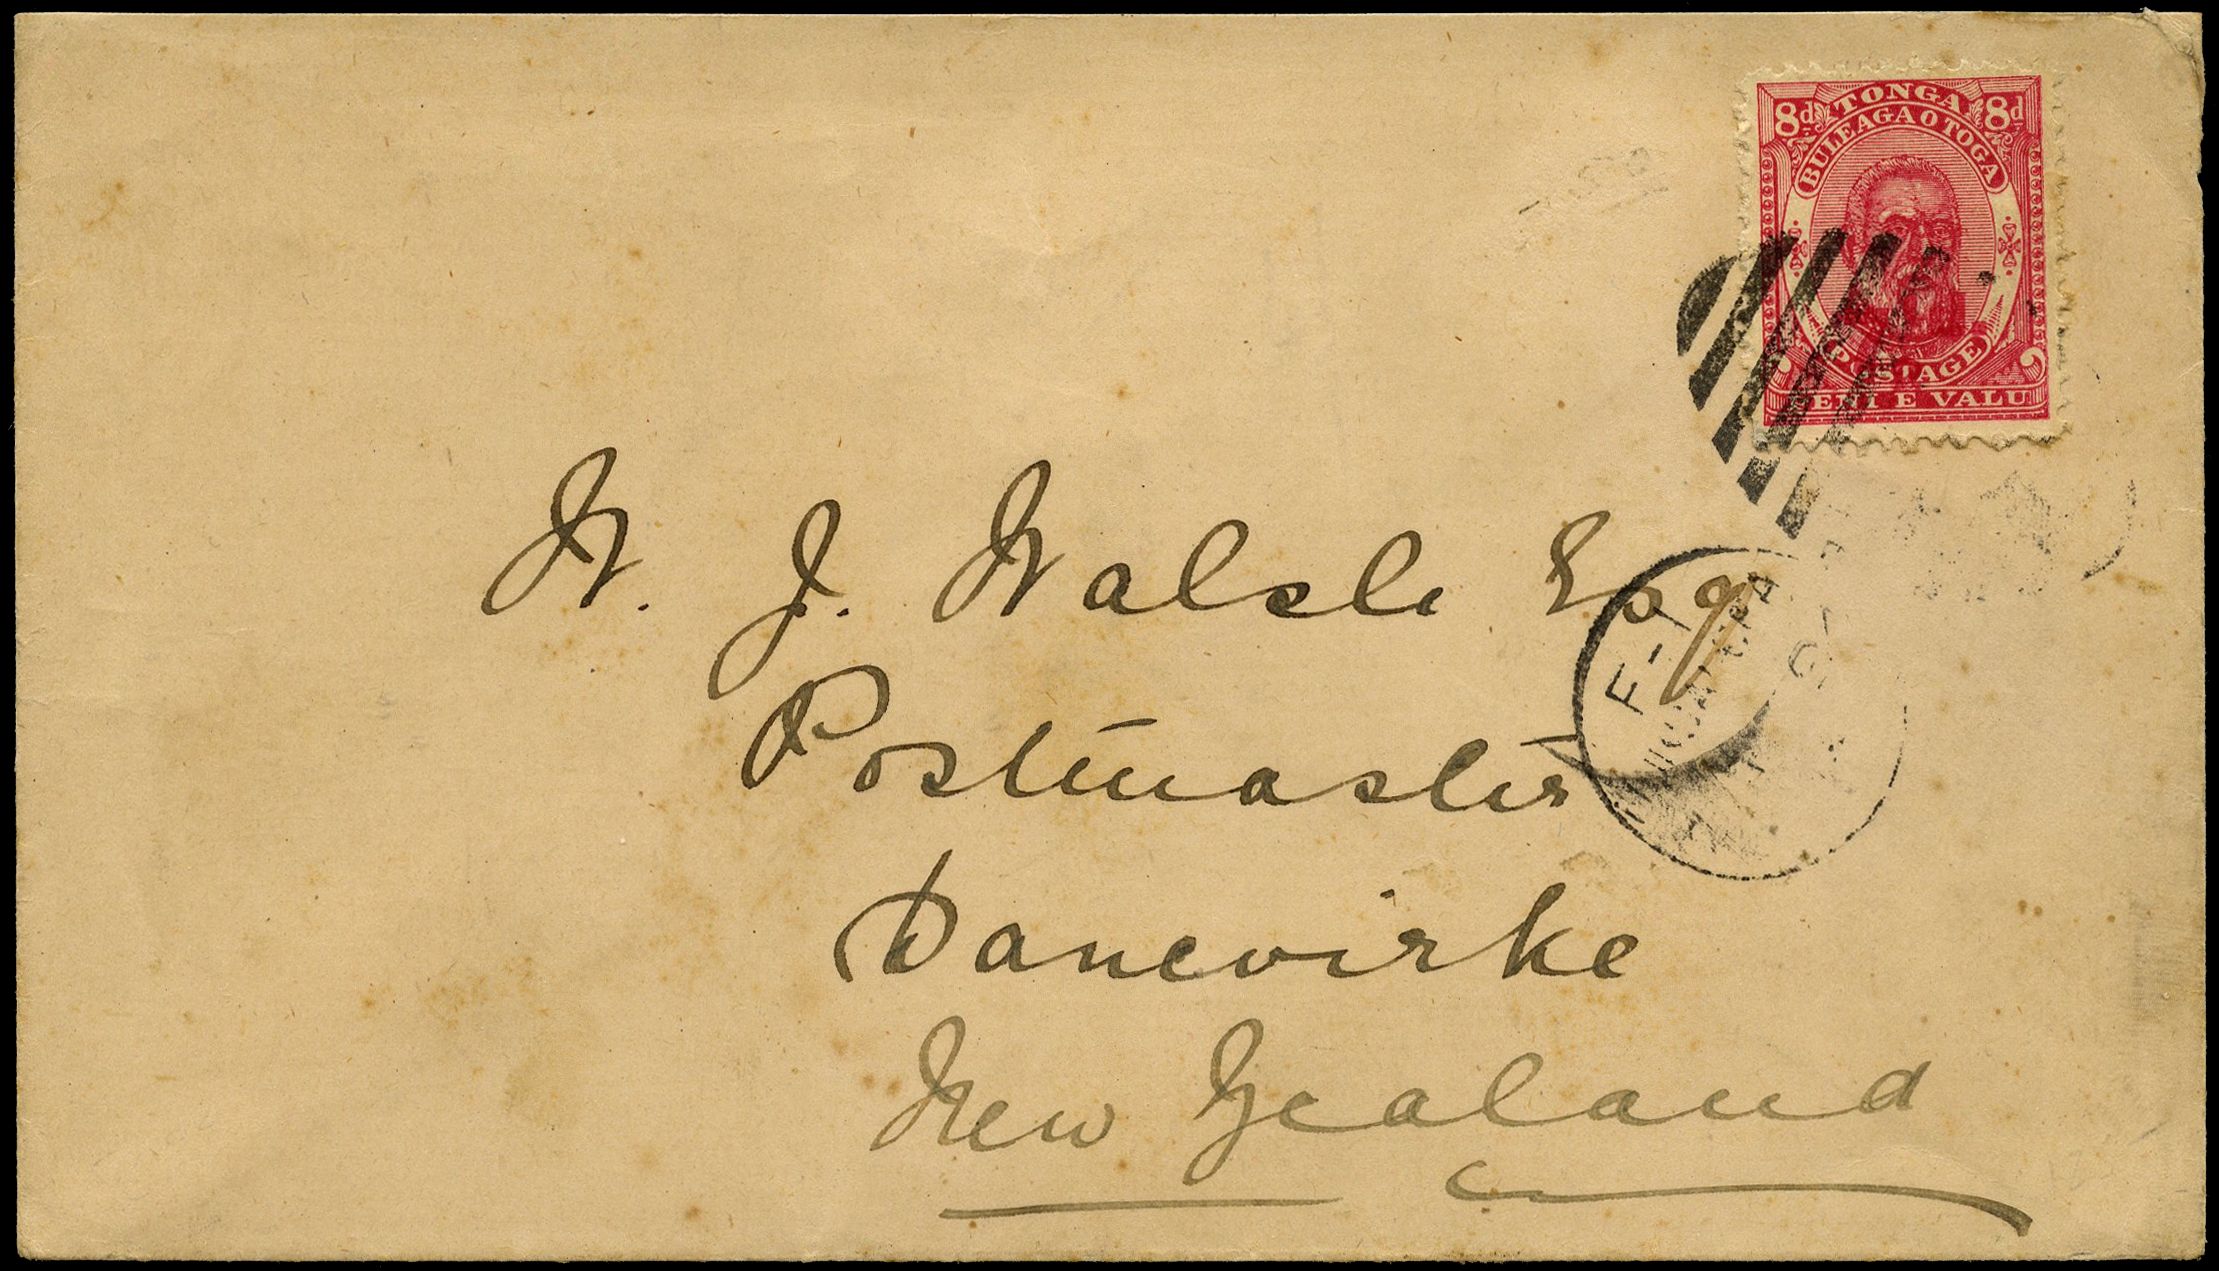 8d TONGA 8d
BULEAGA O TOGA
POSTAGE
PENI E VALU
W. J. Walsh Esq
Postmaster
Danevirke
New Zealand